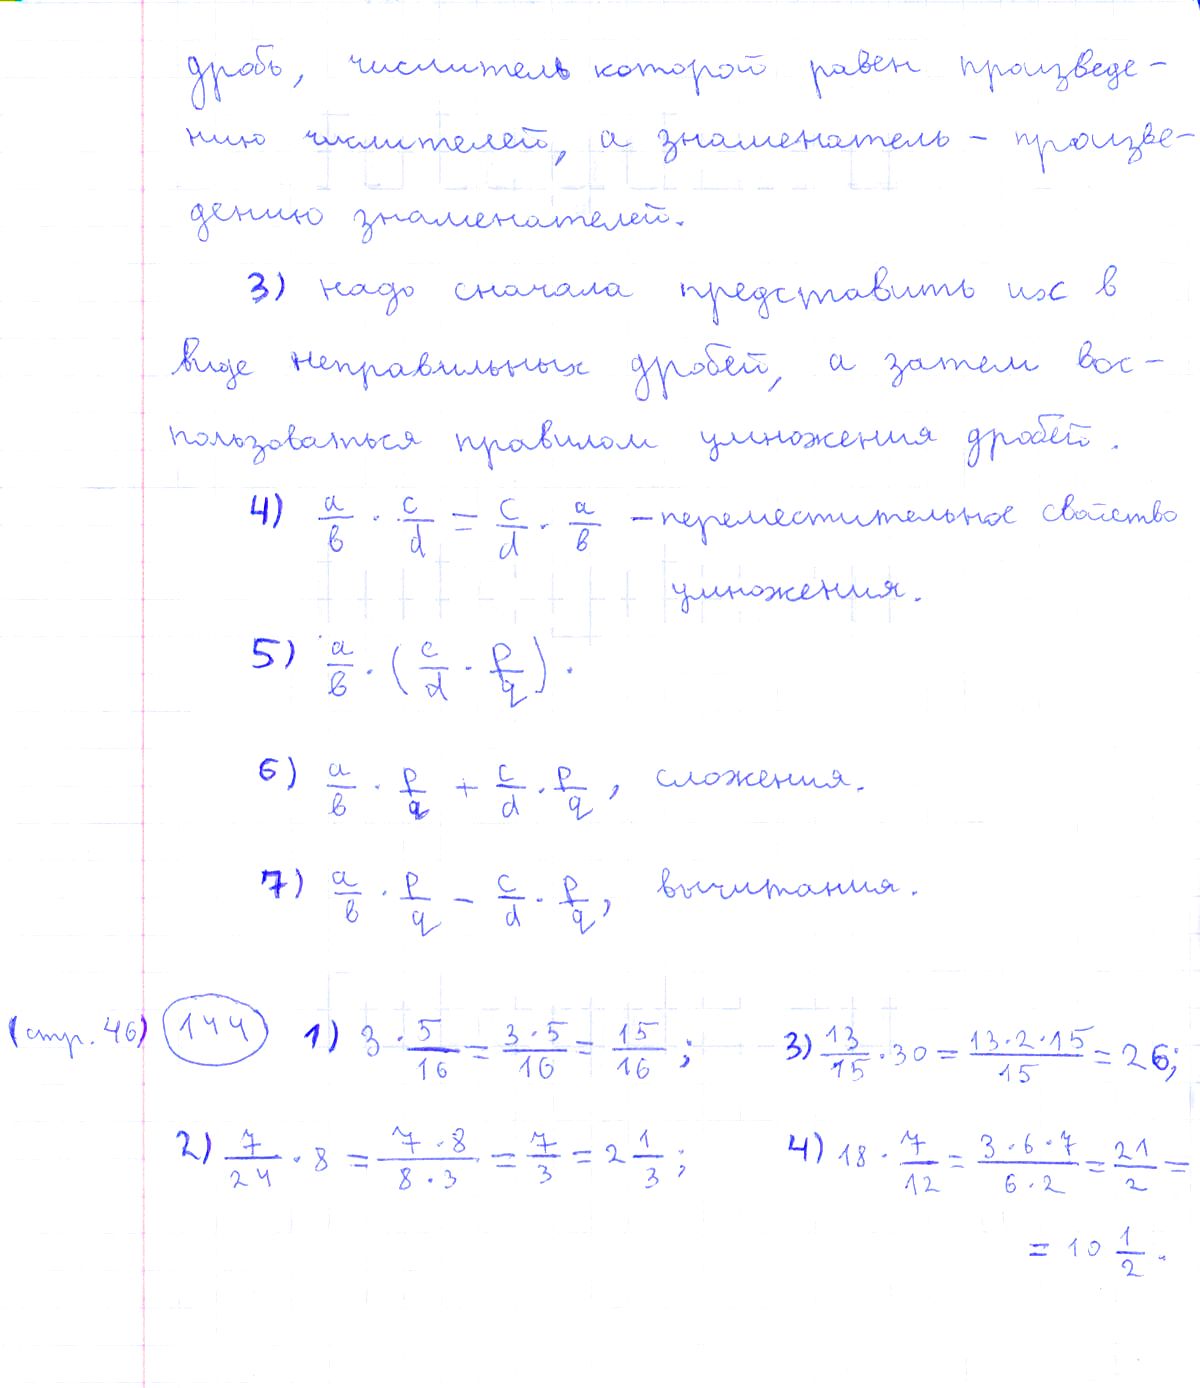 дробь, числитель которой равен произведе-
нию числителей, а знаменатель - произве-
дению знаменателей.
3) надо сначала представить их в
виде неправильных дробей, а затем вос-
пользоваться правилом умножения дробей.
4) a/b · c/d = c/d · a/b - переместительное свойство
умножения.
5) a/b · (c/d · p/q).
6) a/b · p/q + c/d · p/q, сложения.
7) a/b · p/q - c/d · p/q, вычитания.
(стр. 46) 144 1) 3 · 5/16 = 3·5/16 = 15/16; 3) 13/15 · 30 = 13·2·15/15 = 26;
2) 7/24 · 8 = 7·8/8·3 = 7/3 = 2 1/3; 4) 18 · 7/12 = 3·6·7/6·2 = 21/2 =
= 10 1/2.